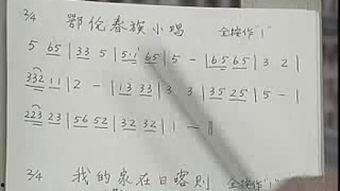 2/4 鄂伦春族小唱 全按作"1"
5 65 | 33 5 | 5·1 65 | 5 – | 65 65 | 3 2 |
332 11 | 2 – | 13 33 | 3 3 | 35 25 | 5 – |
223 23 | 56 52 | 32 32 | 1 – ‖
3/4 我的家在日喀则 全按作"1"